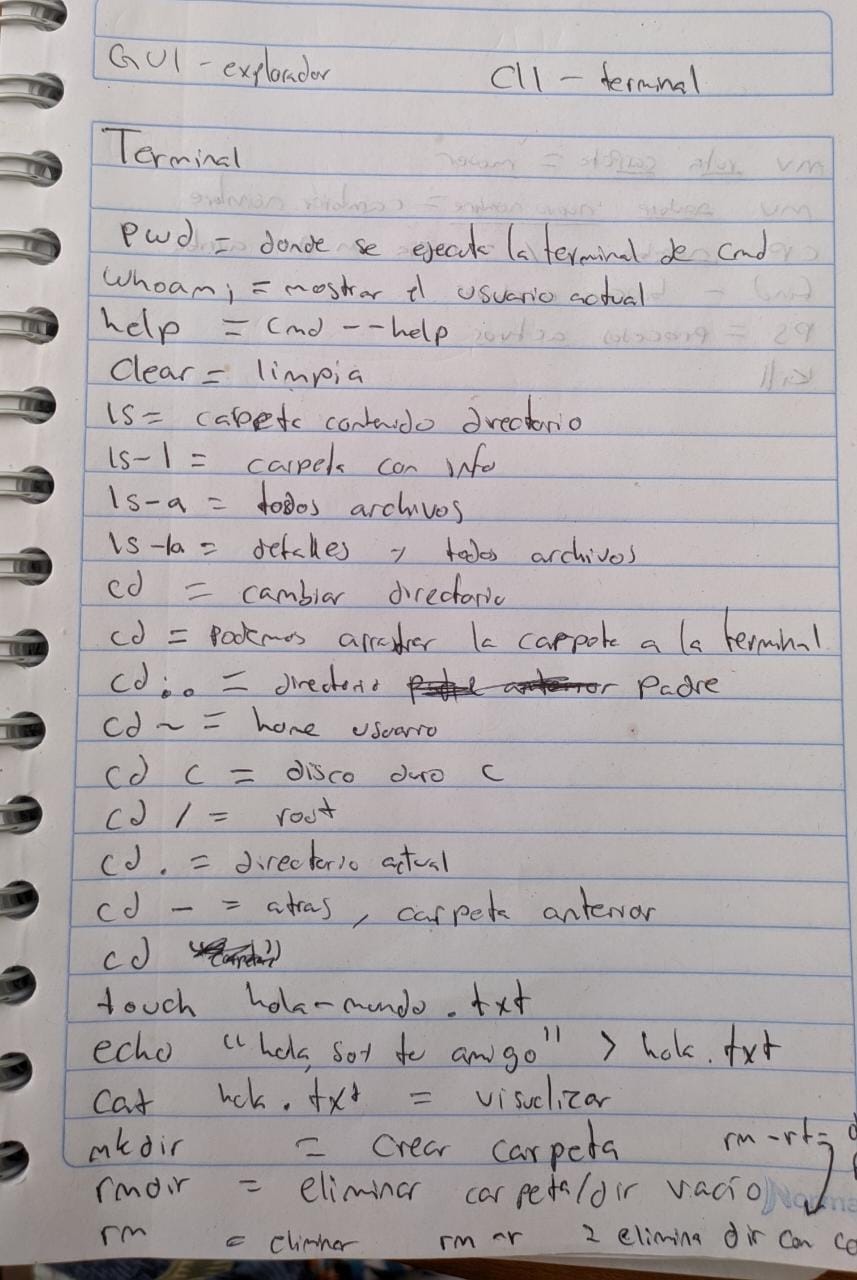 GUI - explorador CLI - terminal
Terminal
pwd = donde se ejecuta la terminal de cmd
whoami = mostrar el usuario actual
help = cmd --help
Clear = limpia
ls = carpeta contenido directorio
ls-l = carpeta con info
ls-a = todos archivos
ls-la = detalles y todos archivos
cd = cambiar directorio
cd = podemos arrastrar la carpeta a la terminal
cd .. = directorio Padre
cd ~ = home usuario
cd C = disco duro C
cd / = root
cd . = directorio actual
cd - = atras, carpeta anterior
cd
touch hola-mundo.txt
echo "hola, soy tu amigo" > hola.txt
cat hola.txt = visualizar
mkdir = Crear carpeta rm -rf=
rmdir = eliminar carpeta/dir vacío
rm = eliminar rm -r elimina dir con